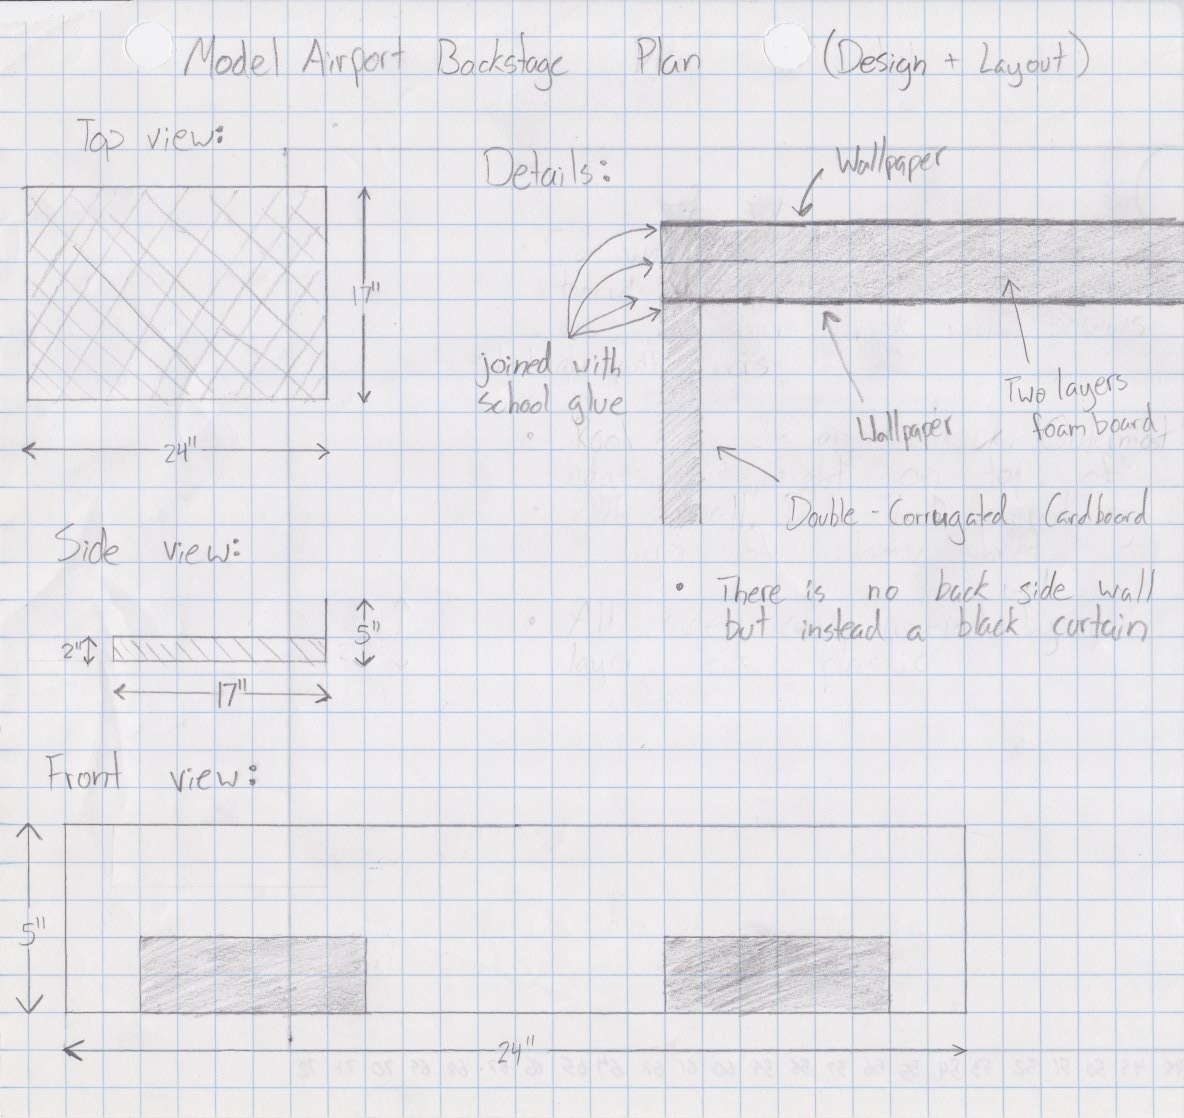 Model Airport Backstage Plan (Design + Layout)
Top view:
17"
24"
Details:
Wallpaper
joined with
school glue
Wallpaper
Two layers
foamboard
Double-Corrugated Cardboard
• There is no back side wall
but instead a black curtain
Side view:
2"
5"
17"
Front view:
5"
24"